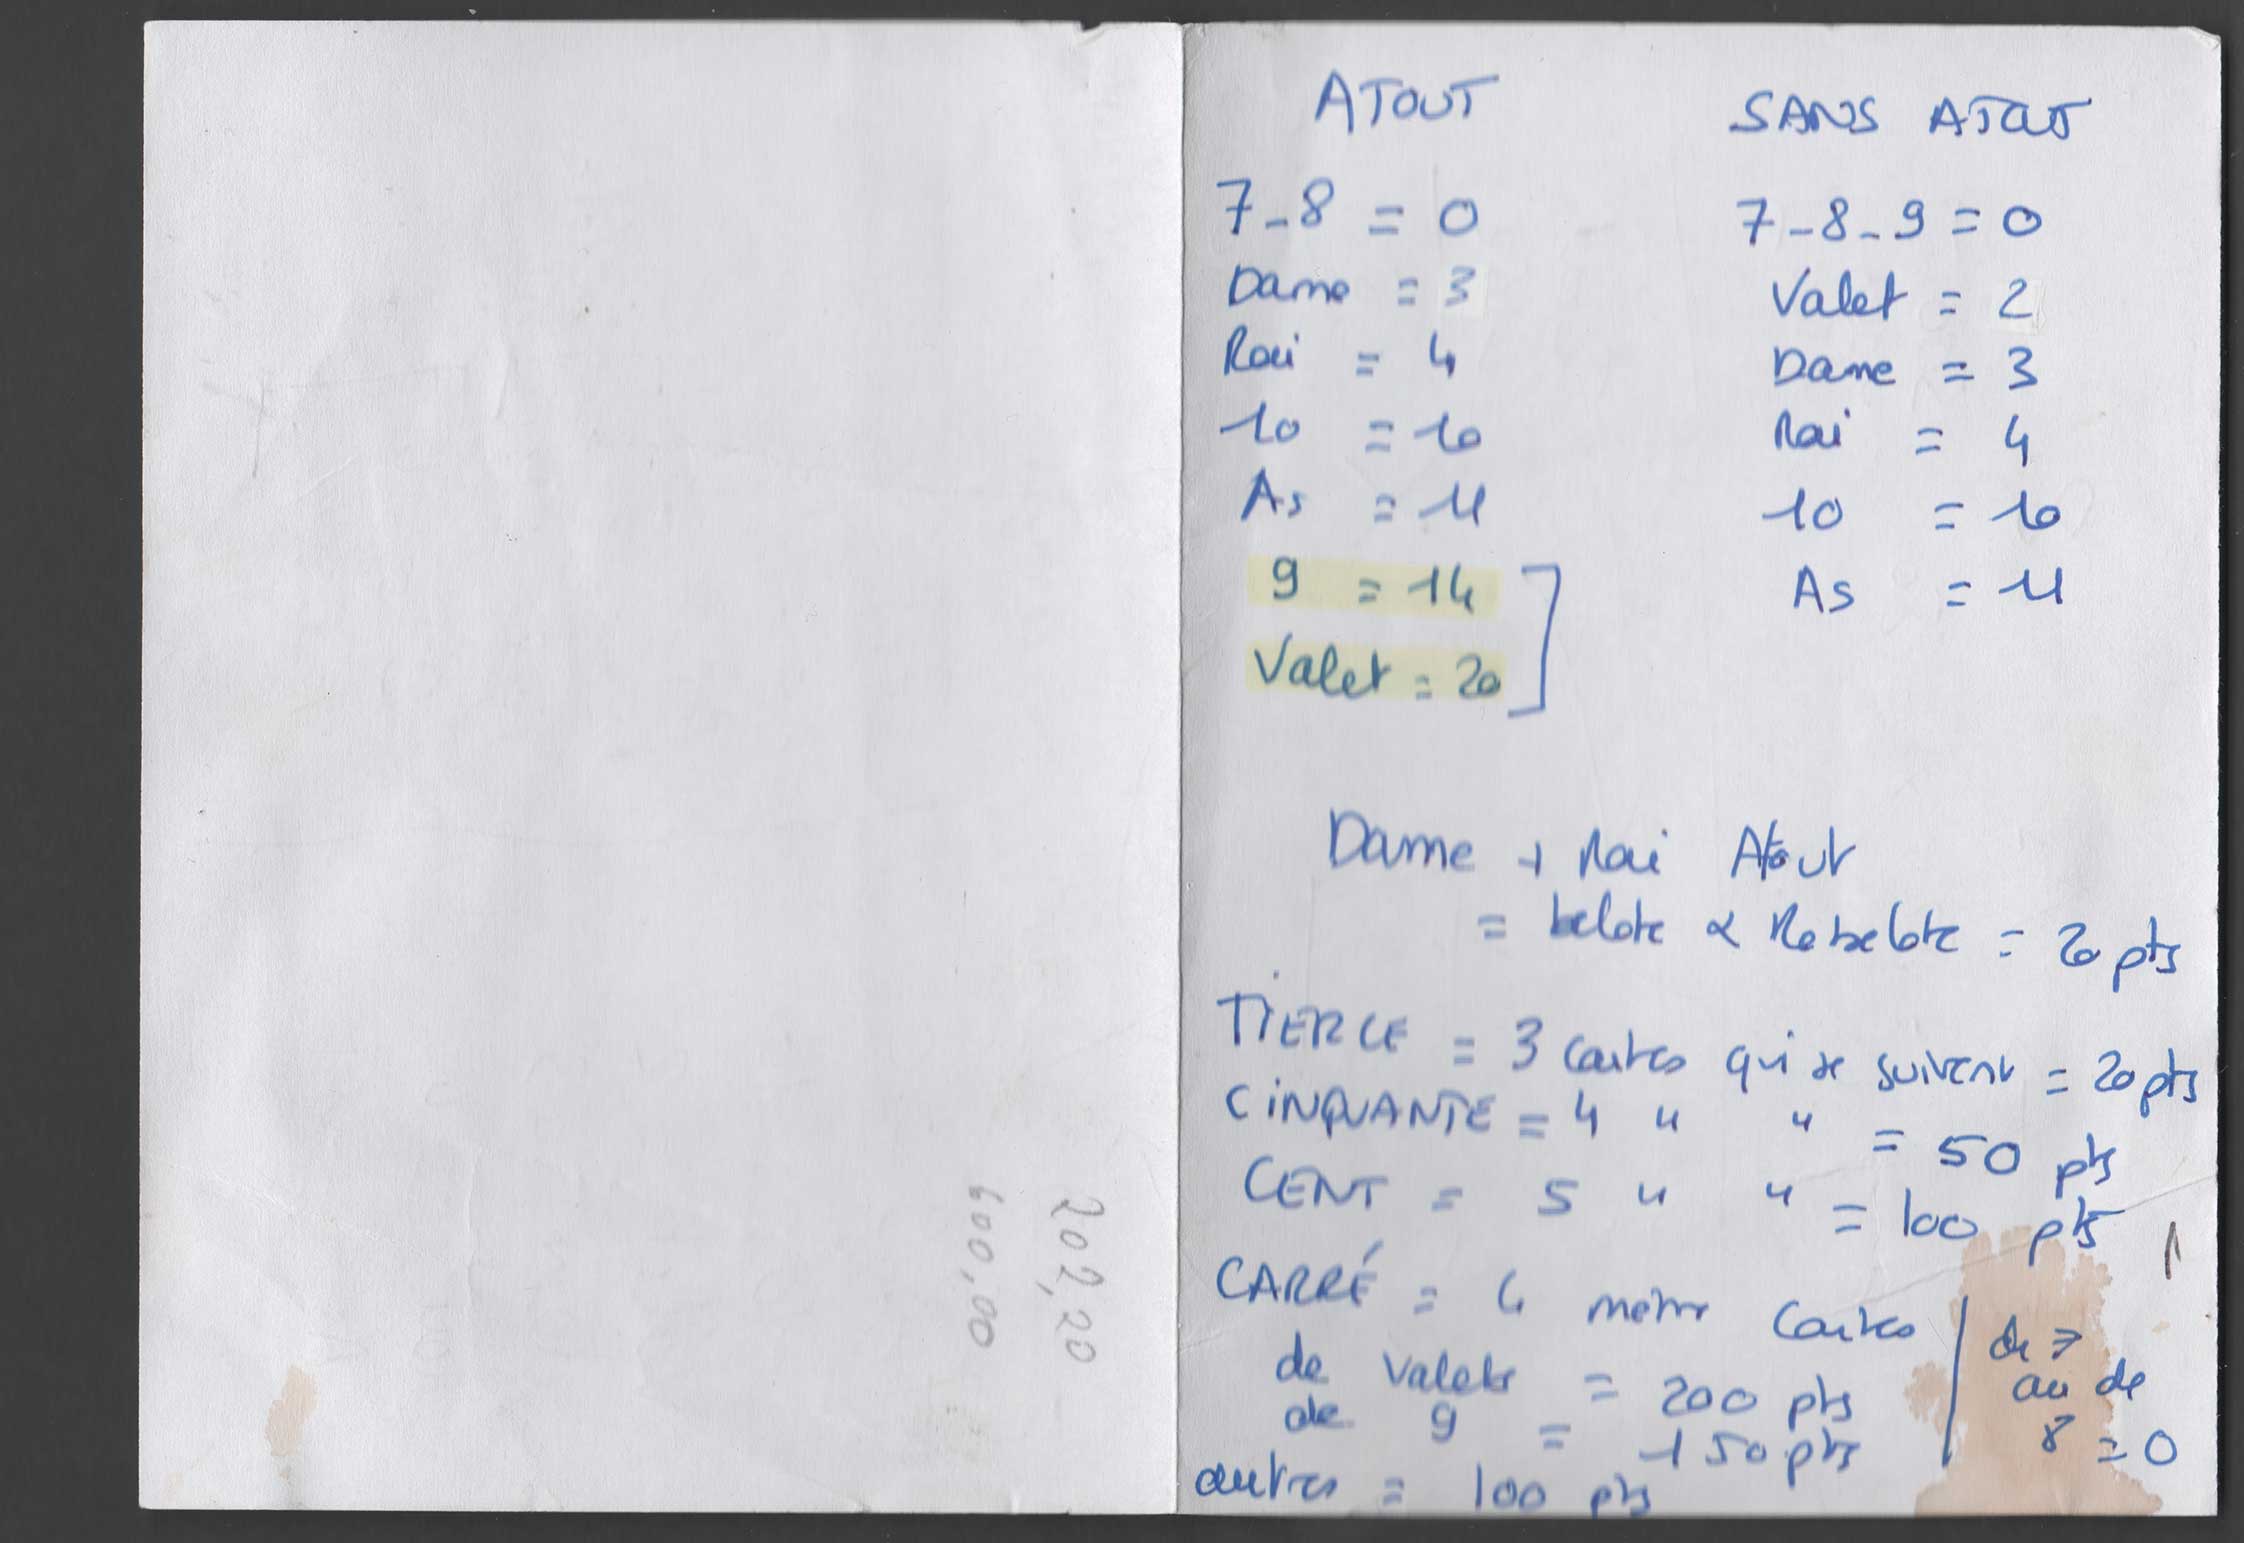 ATOUT
7-8 = 0
Dame = 3
Roi = 4
10 = 10
As = 11
9 = 14
Valet = 20
SANS ATOUT
7-8-9 = 0
Valet = 2
Dame = 3
Roi = 4
10 = 10
As = 11
Dame + Roi Atout
= belote & Rebelote = 20 pts
TIERCE = 3 cartes qui se suivent = 20 pts
CINQUANTE = 4 " " = 50 pts
CENT = 5 " " = 100 pts
CARRÉ = 4 même cartes
de Valets = 200 pts
de 9 = 150 pts
autres = 100 pts
de 7
ou de
8 = 0
202,20
600,00